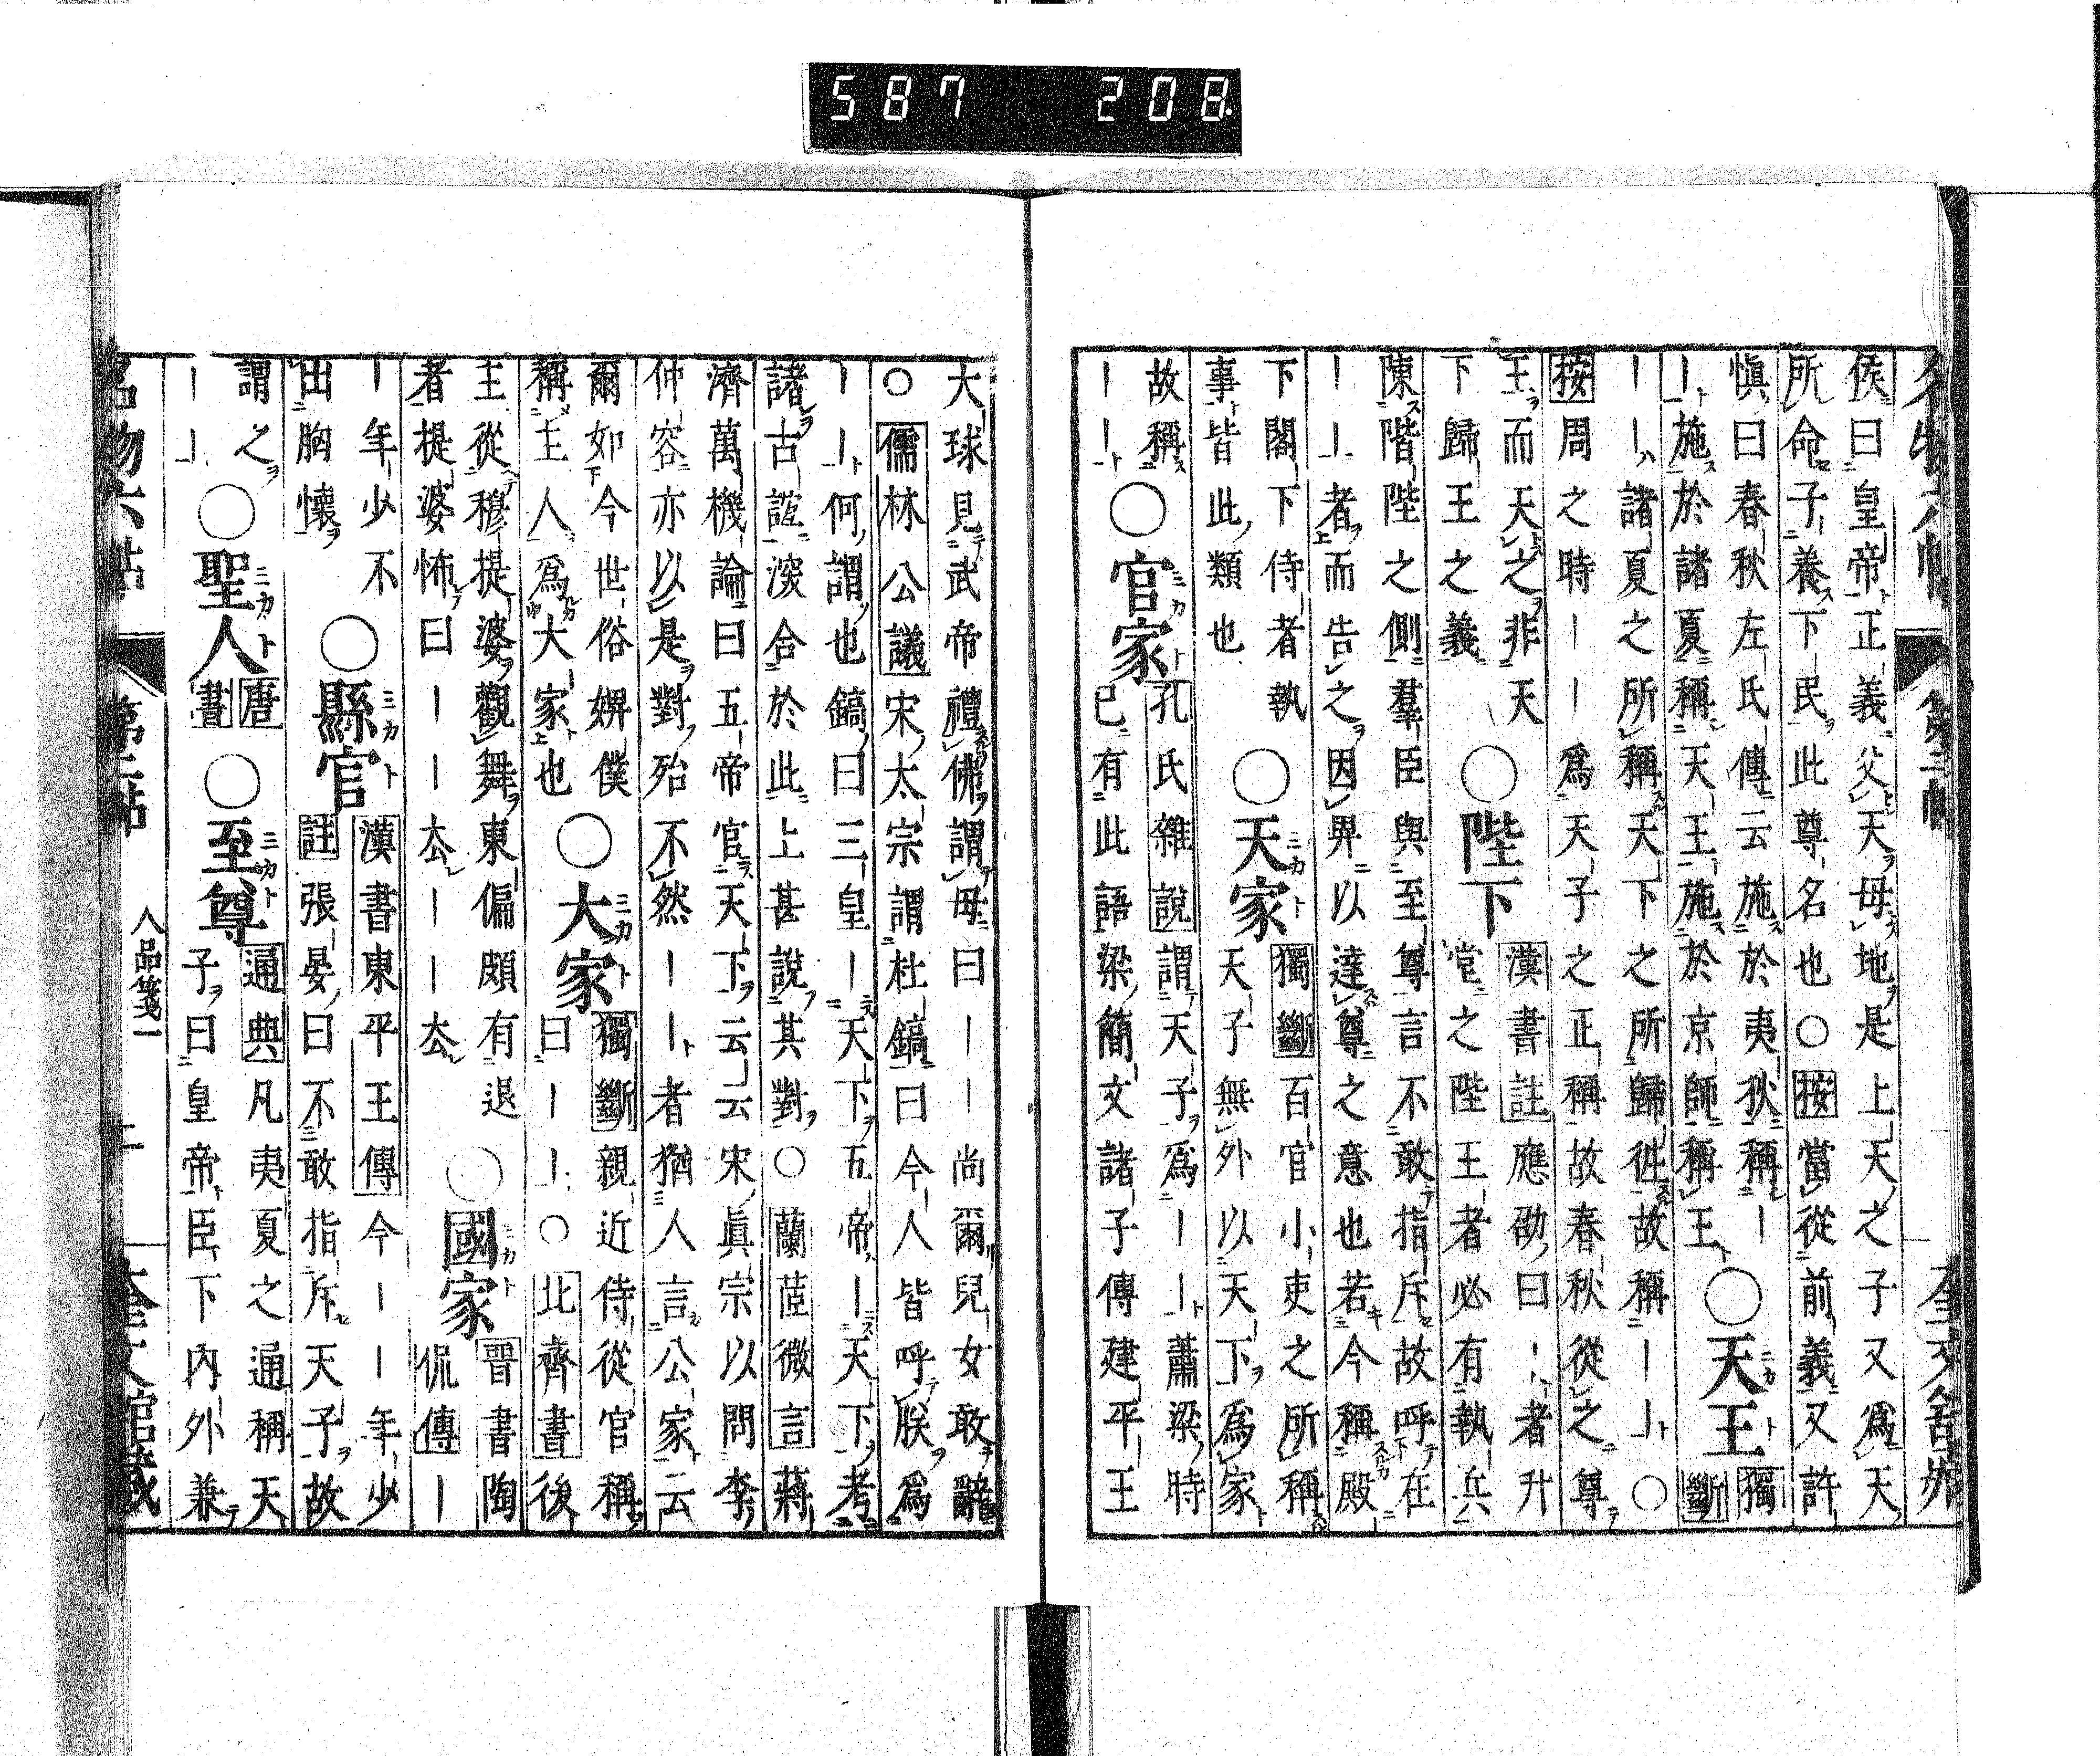 587 208
侯曰皇帝正義父天母地是上天之子又爲天
所命子養下民此尊名也○按當從前義又許
愼曰春秋左氏傳云施於夷狄稱一
一施於諸夏稱天王施於京師稱王
○天王
獨斷
一一諸夏之所稱天下之所歸徃故稱一一○
按周之時一一爲天子之正稱故春秋從之尊
王而天之非天
下歸王之義
○陛下
漢書註應劭曰一一者升
堂之陛王者必有執兵
陳階陛之側羣臣與至尊言不敢指斥故呼在
一一者而告之因畀以達尊之意也若今稱殿
下閣下侍者執
事皆此類也
○天家
獨斷百官小吏之所稱
天子無外以天下爲家
故稱一一
○官家
孔氏雜說謂天子爲一一蕭梁時
已有此語梁簡文諸子傳建平王
大球見武帝禮佛謂母曰一一尚爾兒女敢辭
○儒林公議宋太宗謂杜鎬曰今人皆呼朕爲
一一何謂也鎬曰三皇一天下五帝一天下考
諸古誼深合於此上甚說其對○蘭莝微言蔣
濟萬機論曰五帝官天下云云宋眞宗以問李
仲容亦以是對殆不然一一者猶人言公家云
爾如今世俗婢僕
稱主人爲大家也
○大家
獨斷親近侍從官稱
曰一一○北齊書後
主從穆提婆觀舞東偏頗有退
者提婆怖曰一一厺一一厺
○國家
晋書陶
侃傳一
一年少不
出胸懷
○縣官
漢書東平王傳今一一年少
註張晏曰不敢指斥天子故
謂之
一一
○聖人
唐書
○至尊
通典凡夷夏之通稱天
子曰皇帝臣下內外兼
名物六帖
第三帖
人品箋一
二
奎文館藏